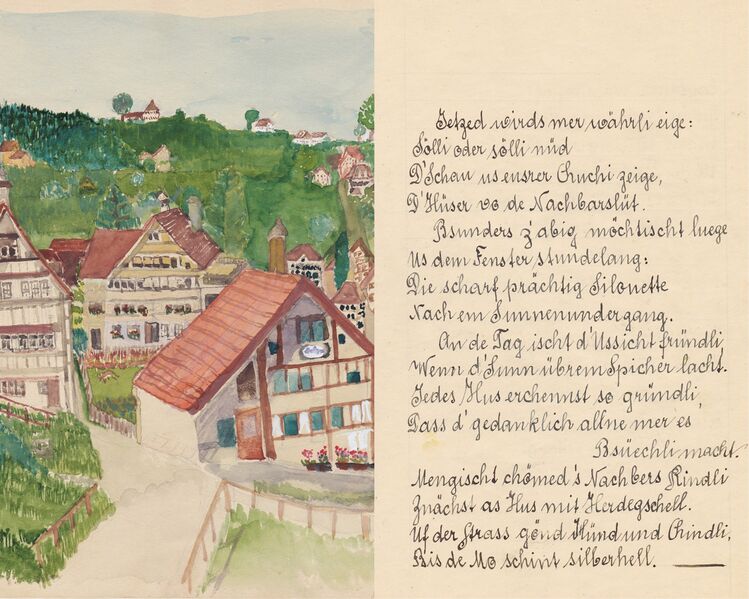 Jetzed wirds mer währli eige:
Sölli oder sölli nüd
D'Schau us eusrer Chuchi zeige,
D'Hüser vo de Nachbarslüt.
Bsunders z'abig möchtischt luege
Us dem Fenster stundelang:
Die scharf prächtig Silouette
Nach em Sunnenundergang.
An de Tag ischt d'Ussicht fründli,
Wenn d'Sunn übrem Spicher lacht.
Jedes Hus erchennst so gründli,
Dass d'gedanklich allne mer es
Bsüechli macht.
Mengischt chömed's Nachbers Rindli
Znächst as Hus mit Herdegschell.
Uf der Strass gönd Hünd und Chindli,
Bis de Mo schint silberhell.